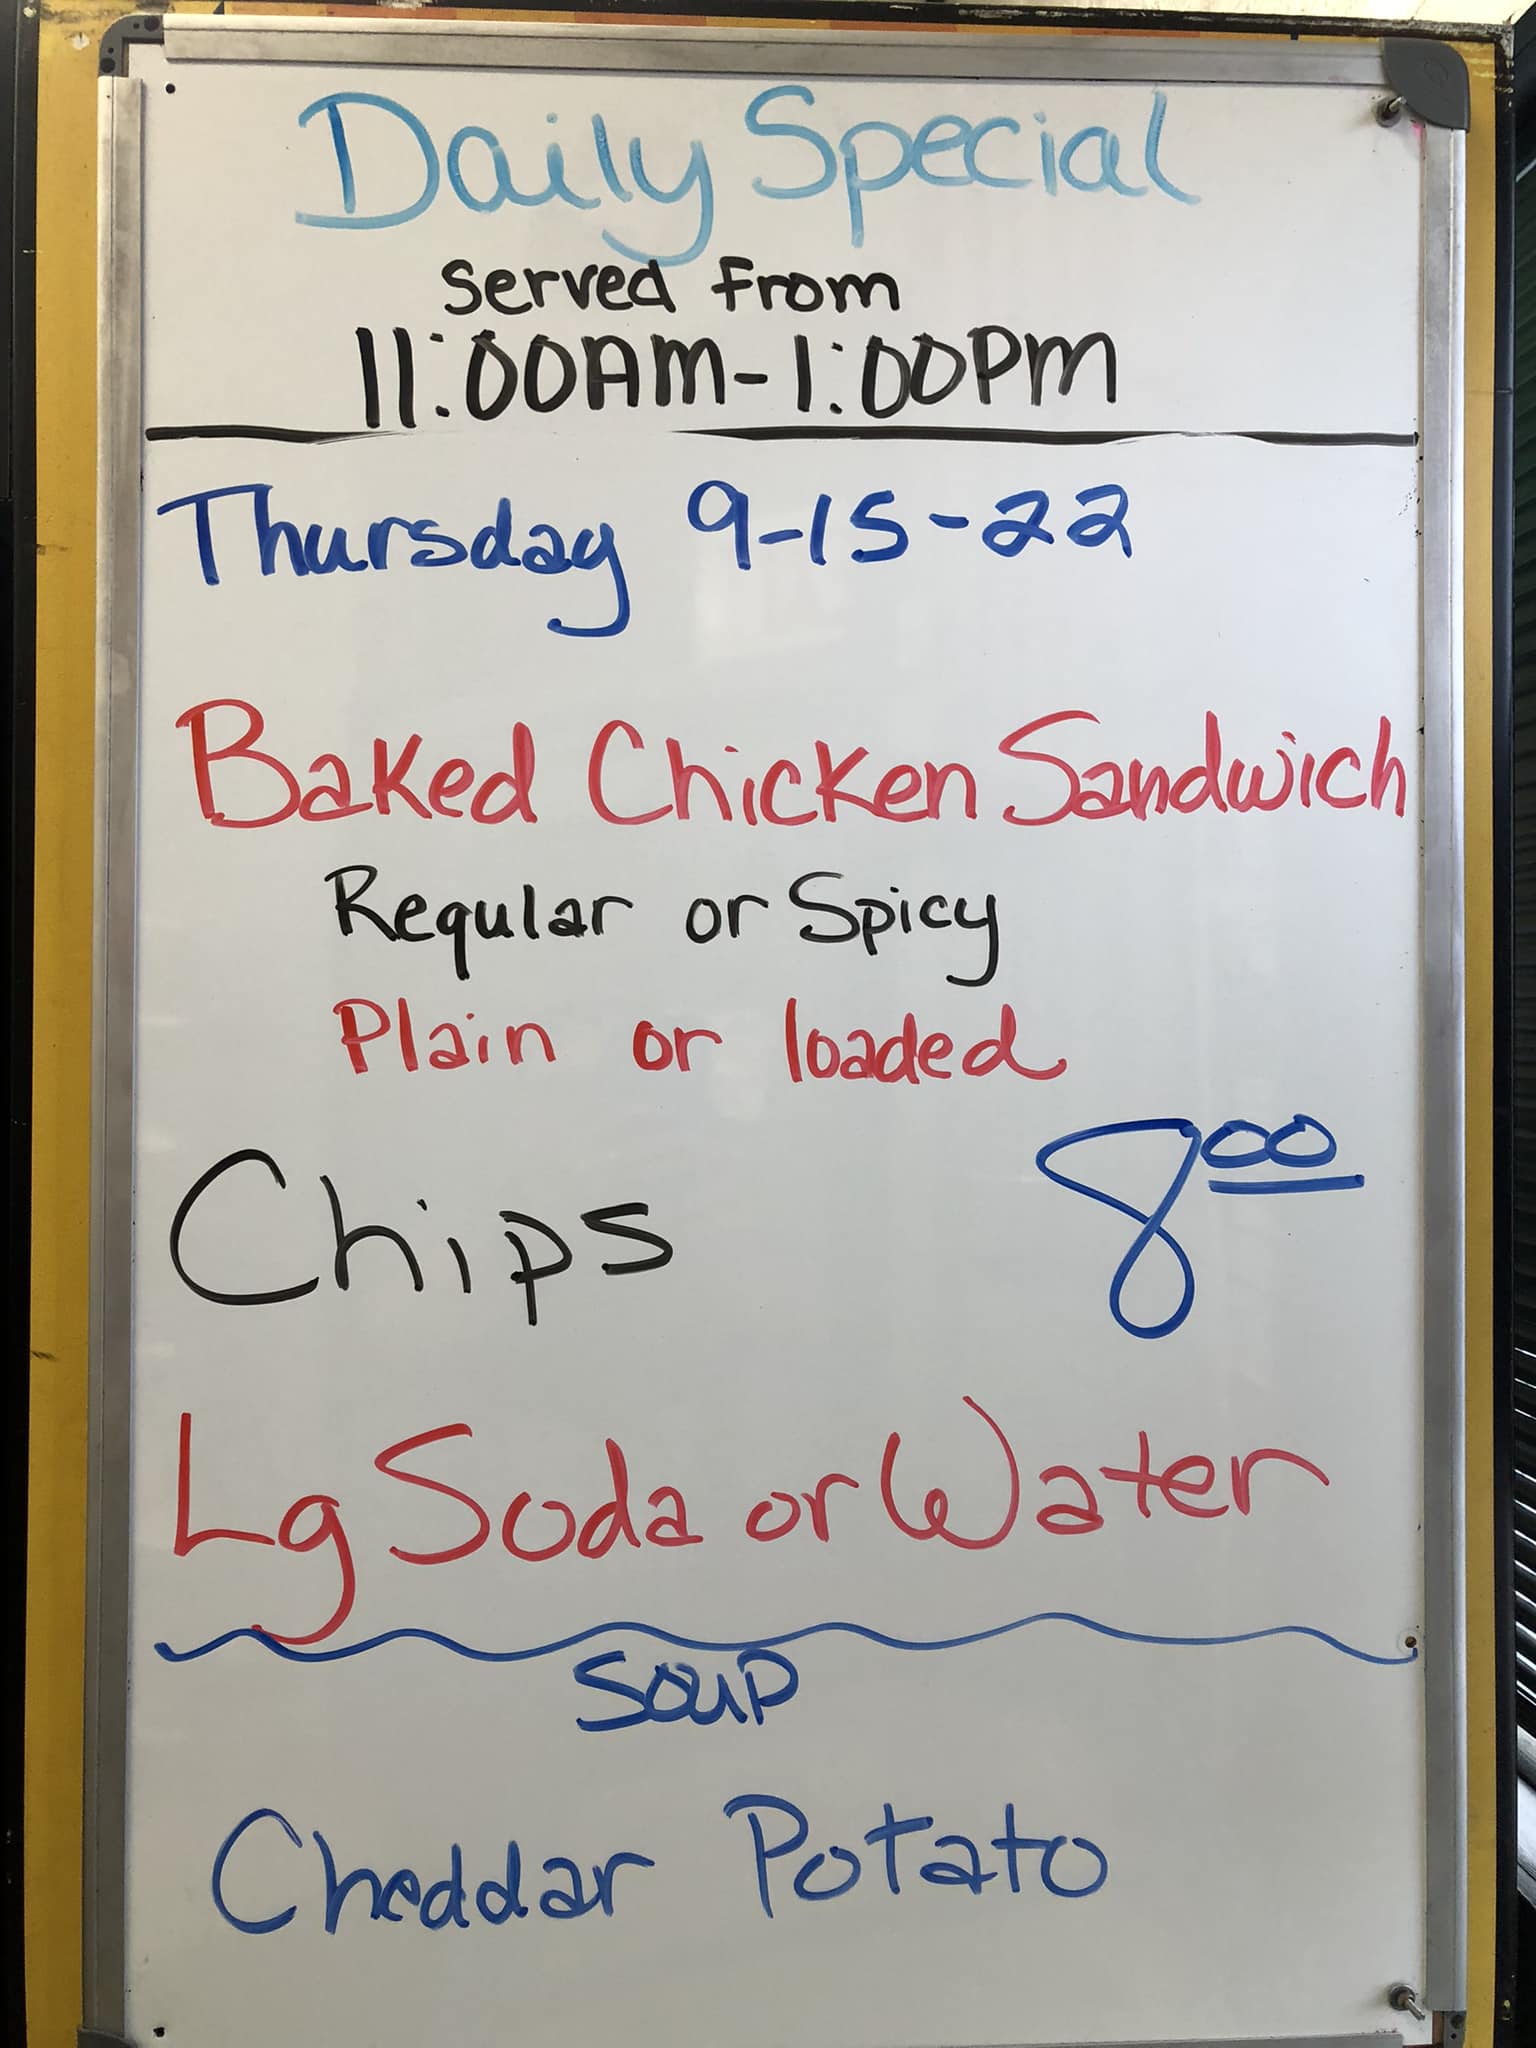 Daily Special
Served From
11:00AM-1:00PM
Thursday 9-15-22
Baked Chicken Sandwich
Regular or Spicy
Plain or loaded
Chips 8 00
Lg Soda or Water
Soup
Cheddar Potato